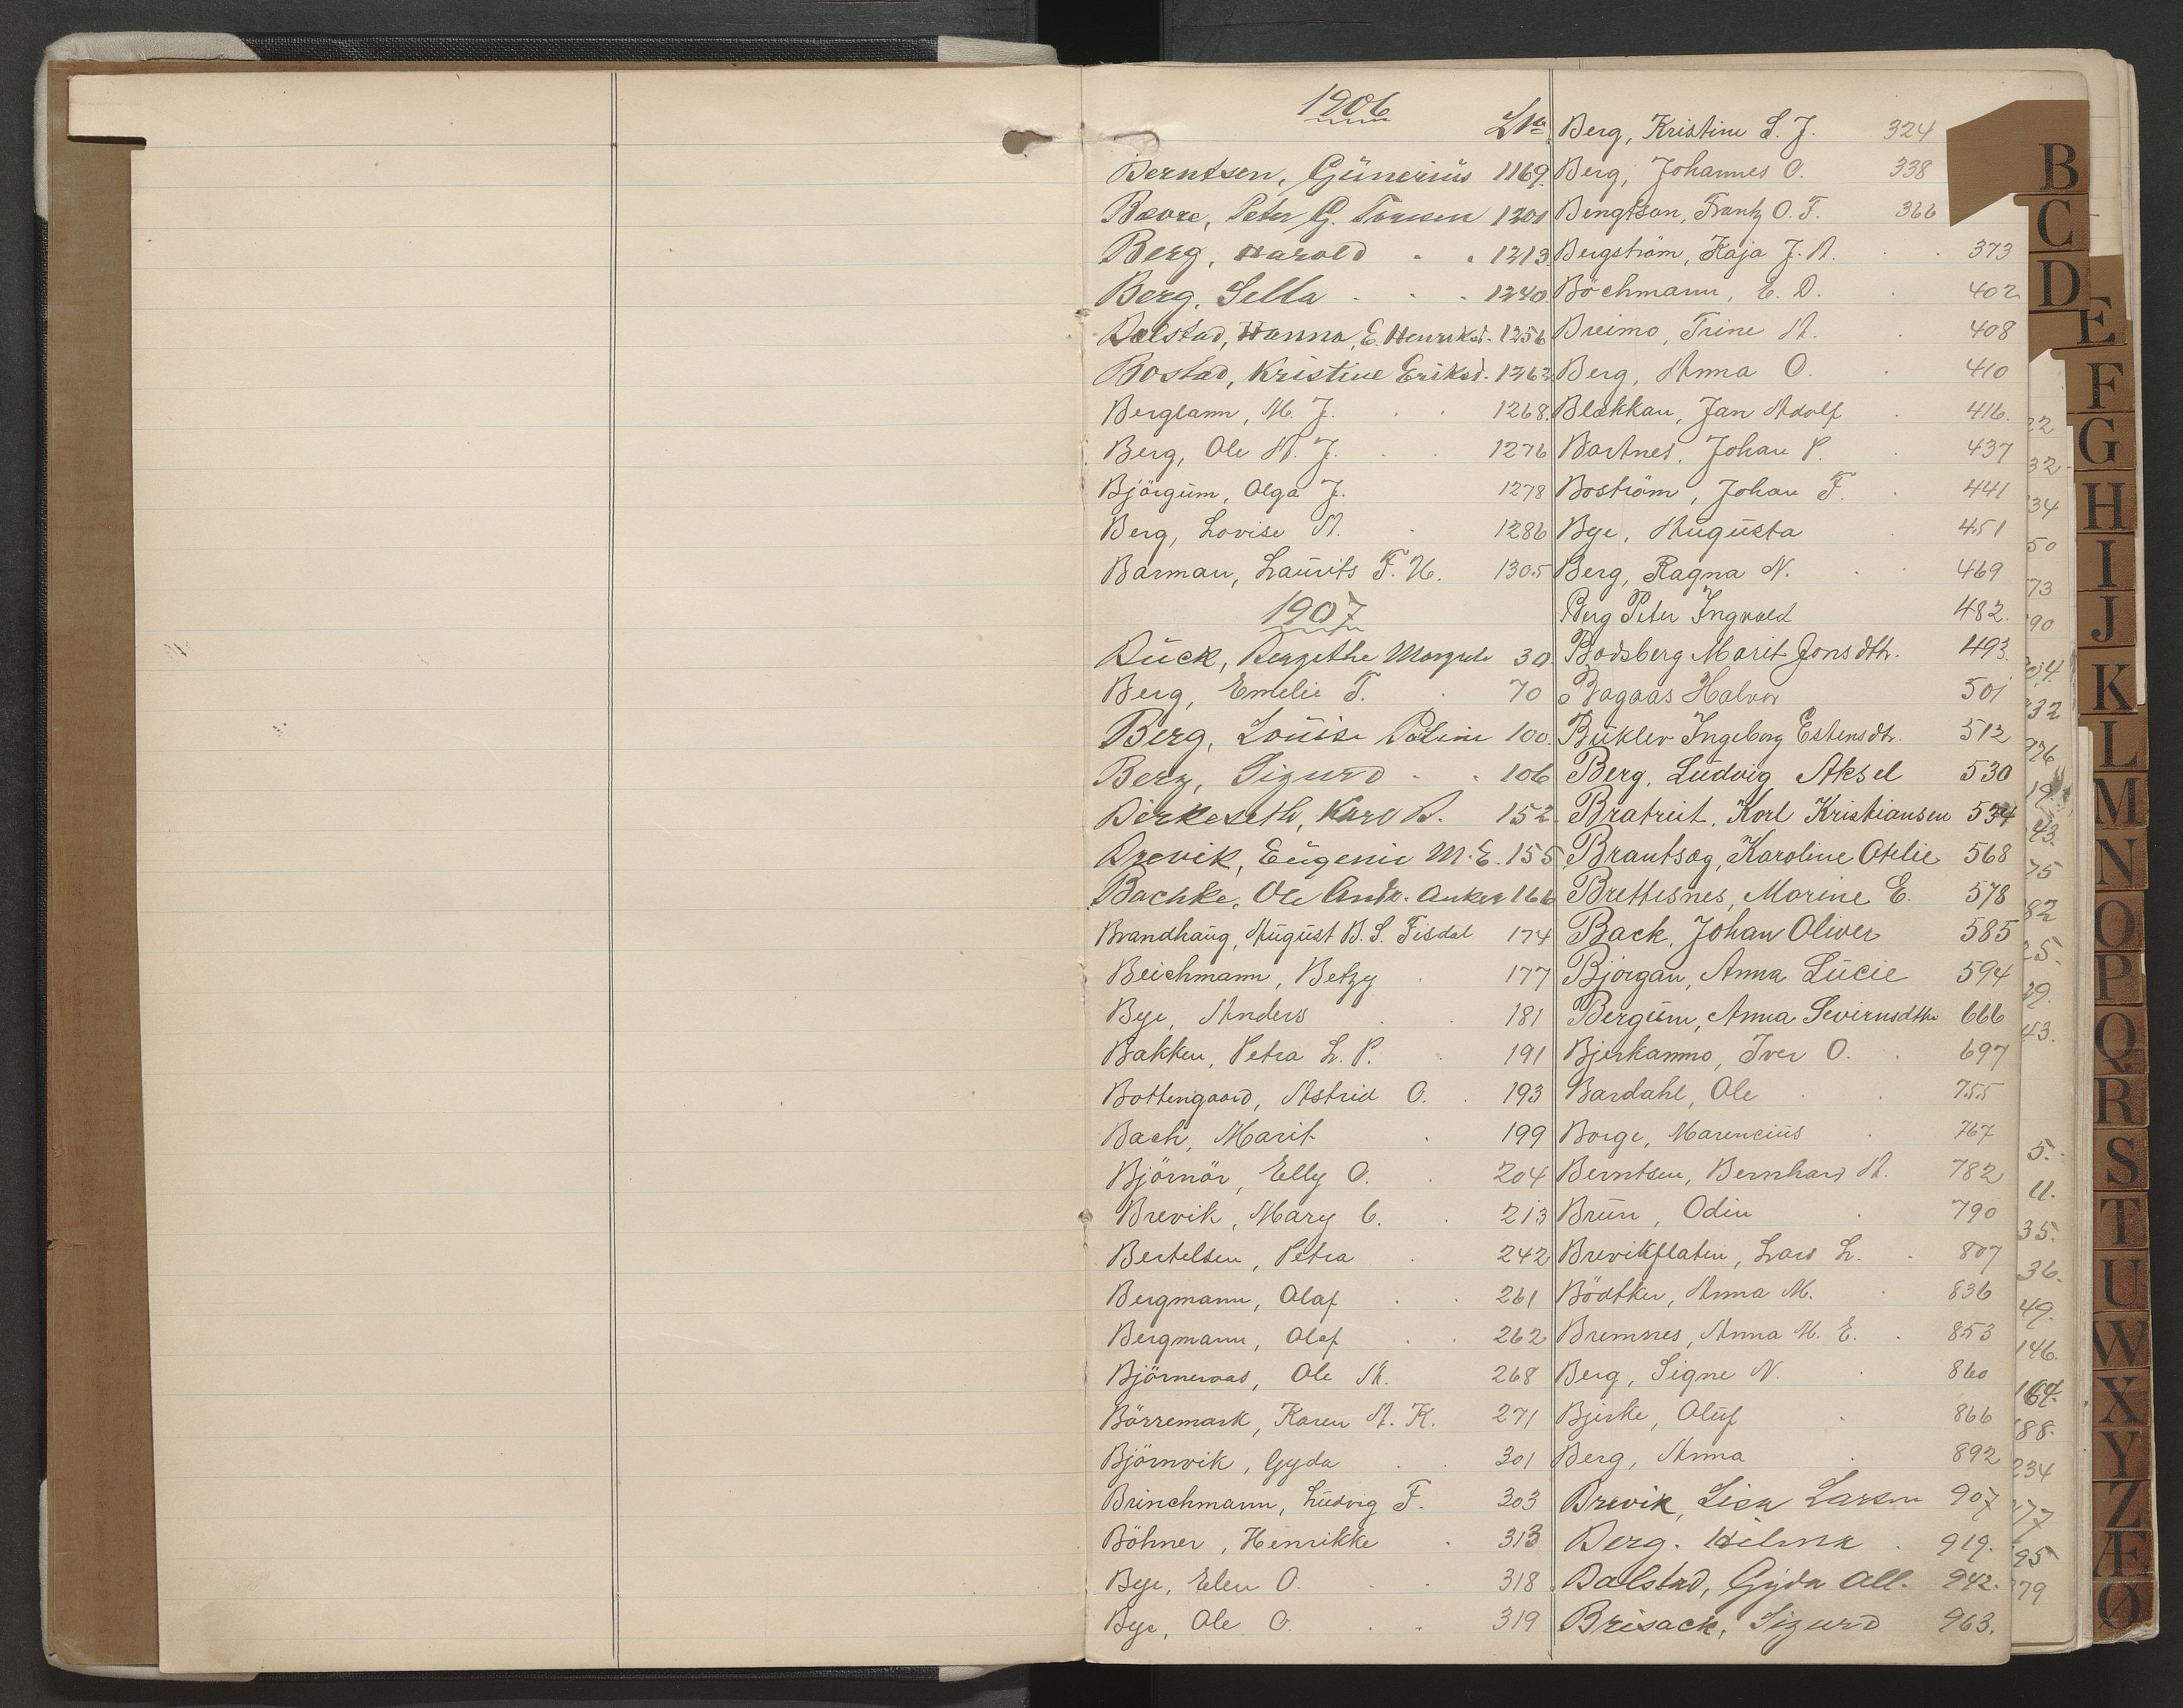 1906
Lno
Berntsen, Günerius 1169.
Bævre, Peter G. Tonsen 1201
Berg, Harald 1213.
Berg, Sella 1240.
Balstad, Hanna, E. Henriksd. 1256
Bostad, Kristine Eriksd. 1262
Berglann, M. J. 1268.
Berg, Ole A. J. 1276
Björgüm, Olga J. 1278
Berg, Lovise A. 1286
Barman, Laürits F. H. 1305
1907
Bück, Bergethe Margrete 30.
Berg, Emelie T. 70
Berg, Loüise Poline 100.
Berg, Sigurd 106
Birkeseth, Karl B. 152.
Brevik, Eügenie M. E. 155
Bachke, Ole Andr. Anker 166
Brandhaüg, Aügüst B. S. Fisdal 174
Beichmann, Betzy 177
Bye, Anders 181
Bakken, Petra L. P. 191
Bottengaard, Astrid O. 193
Bach, Marit 199
Björnör, Elly O. 204
Brevik, Mary C. 213
Bertelsen, Petra 242
Bergmann, Olaf 261
Bergmann, Olaf 262
Björneraas, Ole A. 268
Börremark, Karen A. K. 271
Björnvik, Gyda 301
Brinchmann, Lüdvig F. 303
Böhner, Henrikke 313
Bye, Elen O. 318
Bye, Ole O. 319
Berg, Kristine S. J. 324
Berg, Johannes O. 338
Bengtson, Frantz O. F. 366
Bergström, Kaja J. A. 373
Böchmann, E. D. 402
Breimo, Trine A. 408
Berg, Anna O. 410
Blækkan, Jan Adolf 416.
Bartnes, Johan P. 437
Boström, Johan F. 441
Bye, Aügüsta 451
Berg, Ragna N. 469
Berg Peter Ingvald 482.
Bodsberg Marit Jonsdtr. 493.
Bagaas Halvor 501
Bükler Ingeborg Estensdtr. 512
Berg, Lüdvig Aksel 530
Bratreit, Karl Kristiansen 534
Brautsæg, Karoline Otelie 568
Brettesnes, Marine E. 578
Back, Johan Oliver 585
Björgan, Anna Lücie 594
Bergüm, Anna Sevirinsdtr 666
Bjerkanmo, Iver O. 697
Bardahl, Ole 755
Borge, Marenciüs 767
Berntsen, Bernhard A. 782
Brün, Odin 790
Brevikflaten, Lars L. 807
Bödtker, Anna M. 836
Bremnes, Anna M. E. 853
Berg, Signe N. 860
Bjerke, Olüf 866
Berg, Anna 892
Brevik, Lisa Larsen 907
Berg. Hilma 919.
Balstad, Gyda All. 942.
Brisack, Sigurd 963.
22
32
34
50
73
90
32
43.
75
82
25.
43.
5.
11.
35.
36.
49.
146.
164.
188.
234
77
95
79
B
C
D
E
F
G
H
I
J
K
L
M
N
O
P
Q
R
S
T
U
W
X
Y
Z
Æ
Ø